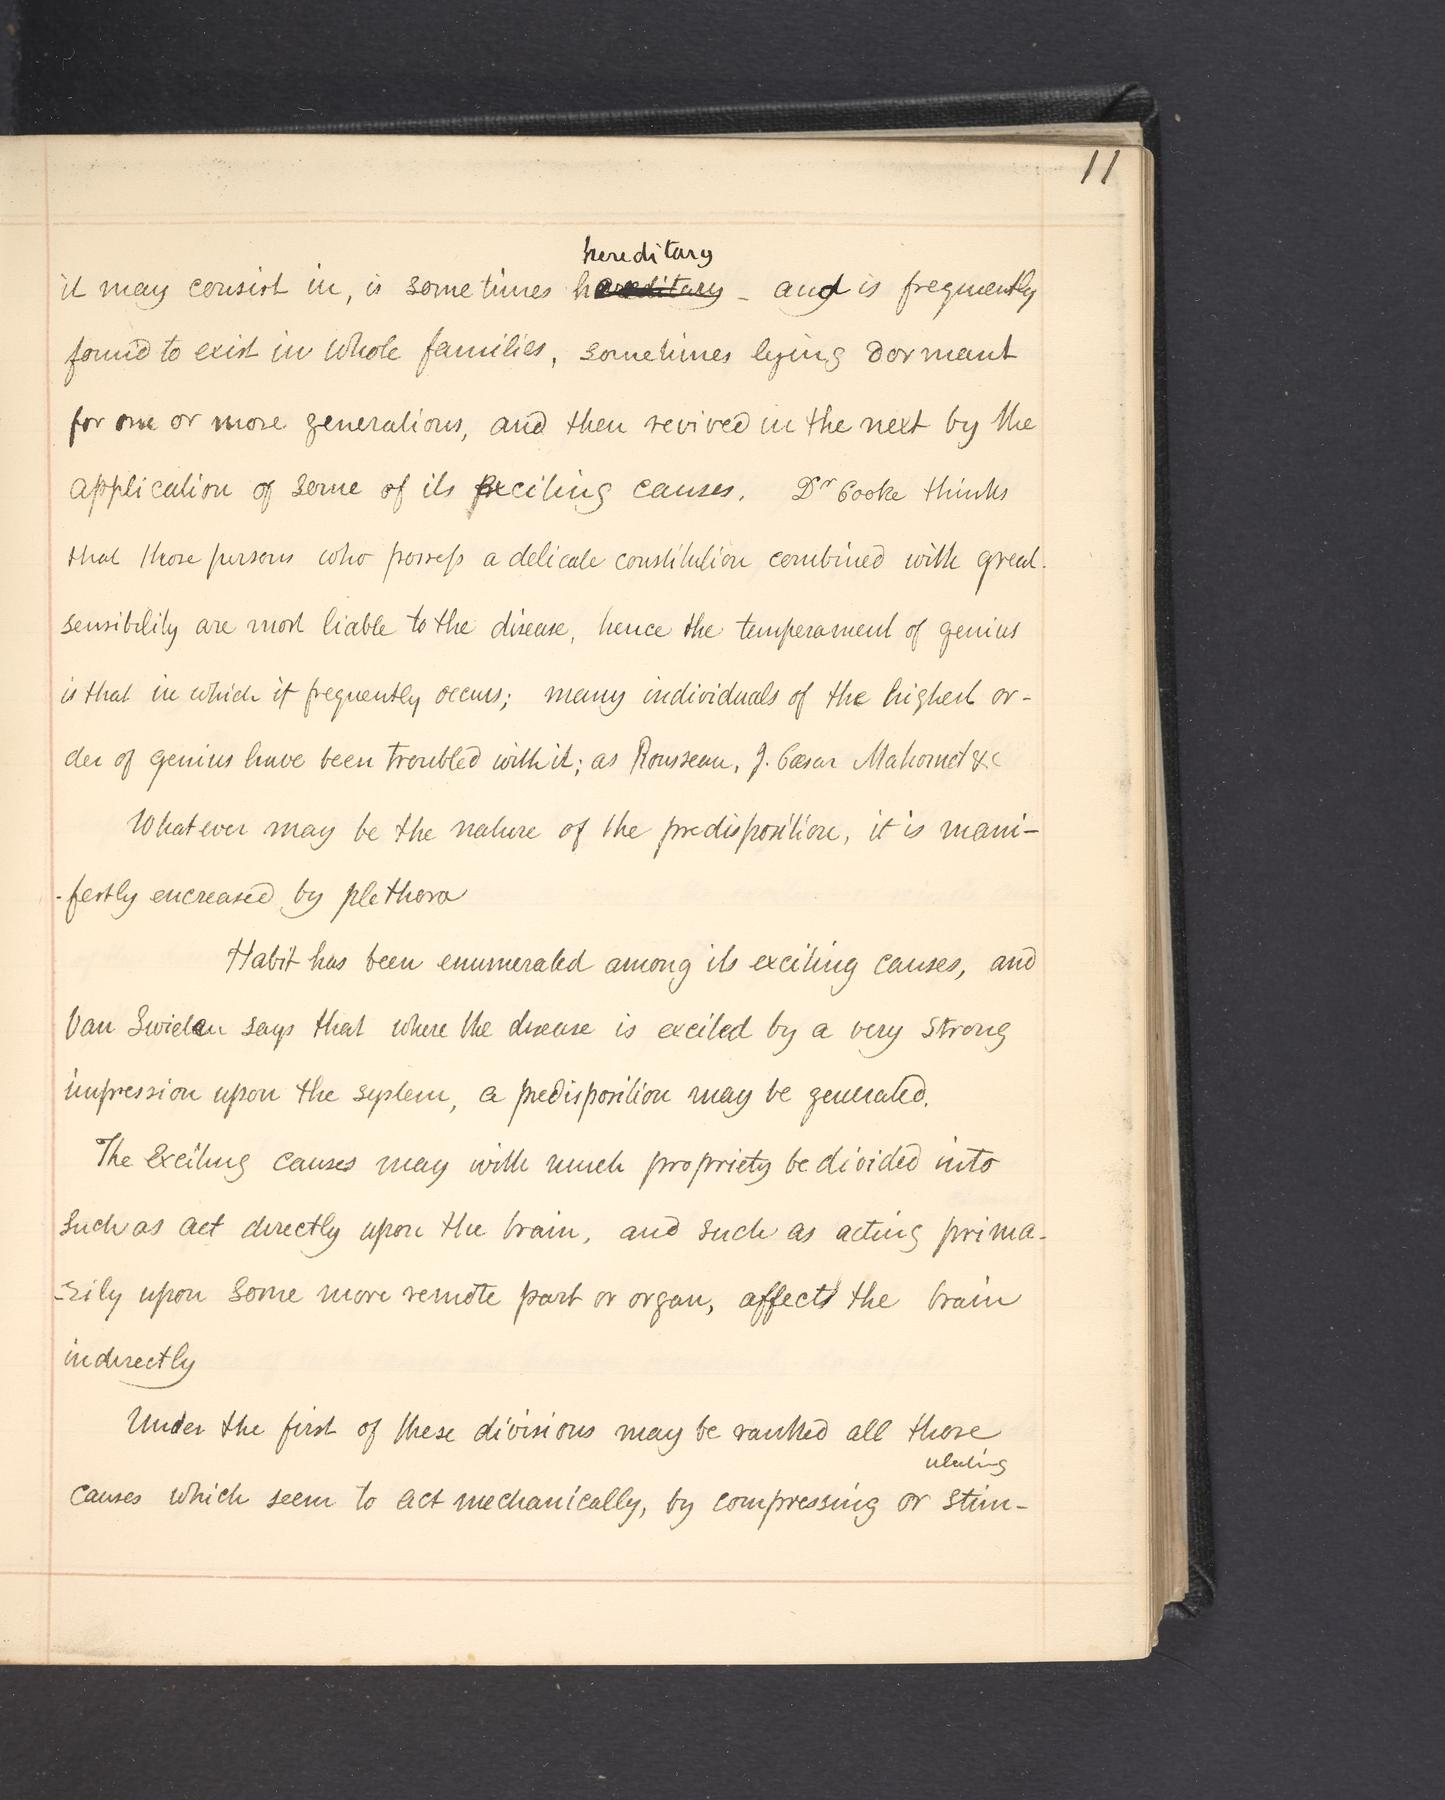 11
hereditary
it may consist in, is sometimes hareditary - and is frequently
found to exist in whole families, sometimes lying dormant
for one or more generations, and then revived in the next by the
application of some of its exciting causes. Dr Cooke thinks
that those persons who possess a delicate constitution combined with great
sensibility are most liable to the disease, hence the temperament of genius
is that in which it frequently occurs; many individuals of the highest or-
der of genius have been troubled with it; as Rousseau, J. Cæsar Mahomet &c
Whatever may be the nature of the predisposition, it is mani-
-festly encreased by plethora
Habit has been enumerated among its exciting causes, and
Van Swieten says that where the disease is excited by a very strong
impression upon the system, a predisposition may be generated.
The Exciting causes may with much propriety be divided into
such as act directly upon the brain, and such as acting prima-
-rily upon some more remote part or organ, affects the brain
indirectly
Under the first of these divisions may be ranked all those
causes which seem to act mechanically, by compressing or stim-
ulating